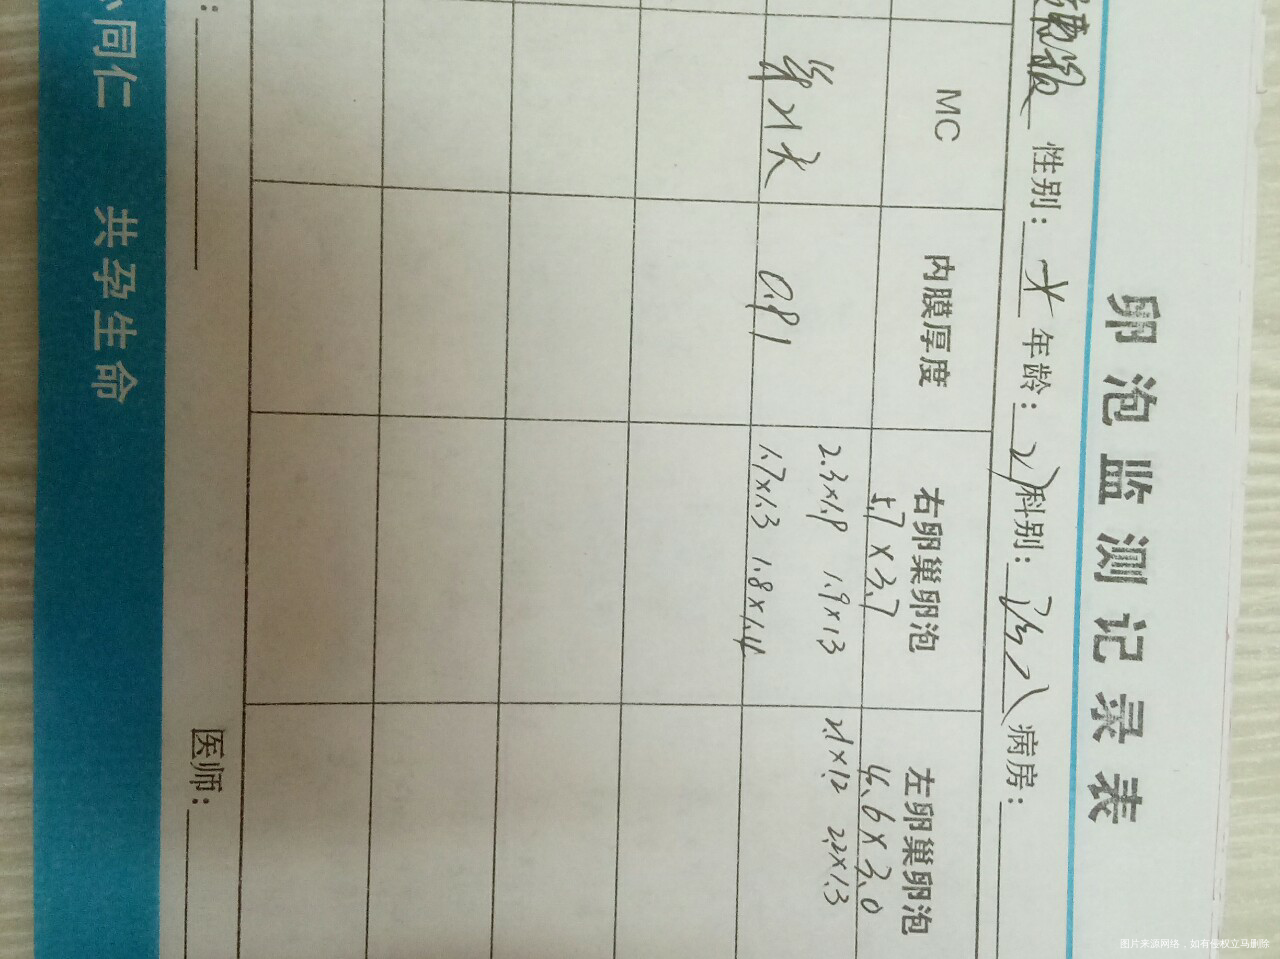 卵泡监测记录表
性别: 女 年龄: 科别: 病房:
MC 内膜厚度 右卵巢卵泡 左卵巢卵泡
5.7×3.7 4.6×3.0
第21天 0.91 2.3×1.9 1.9×1.3 2.1×1.2 2.2×1.3
1.7×1.3 1.8×1.4
医师:
同仁 共孕生命
图片来源网络，如有侵权立马删除